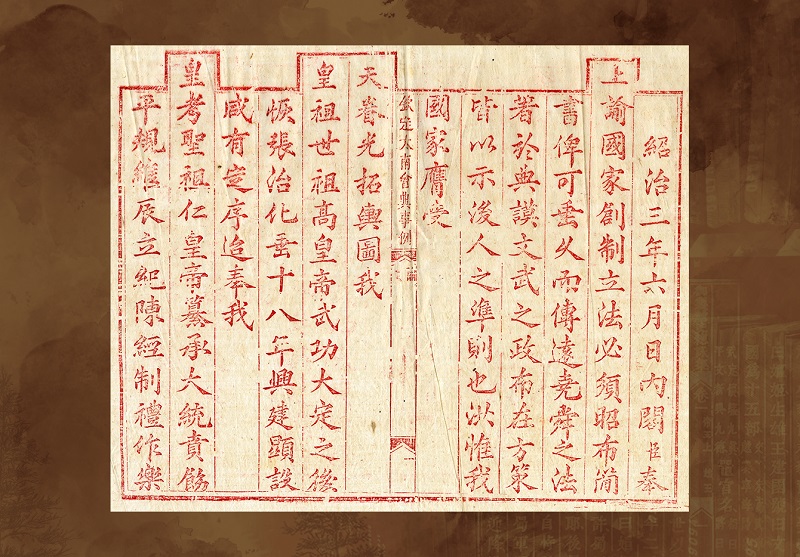 紹治三年六月日內閣臣奉
上諭國家創制立法必須昭布簡
書俾可垂久而傳遠堯舜之法
著於典謨文武之政布在方策
皆以示後人之準則也洪惟我
國家膺受
欽定大南會典事例
天眷光拓輿圖我
皇祖世祖高皇帝武功大定之後
恢張治化垂十八年興建顯設
咸有定序迨奉我
皇考聖祖仁皇帝纂承大統賁飾
平規維辰立紀陳經制禮作樂